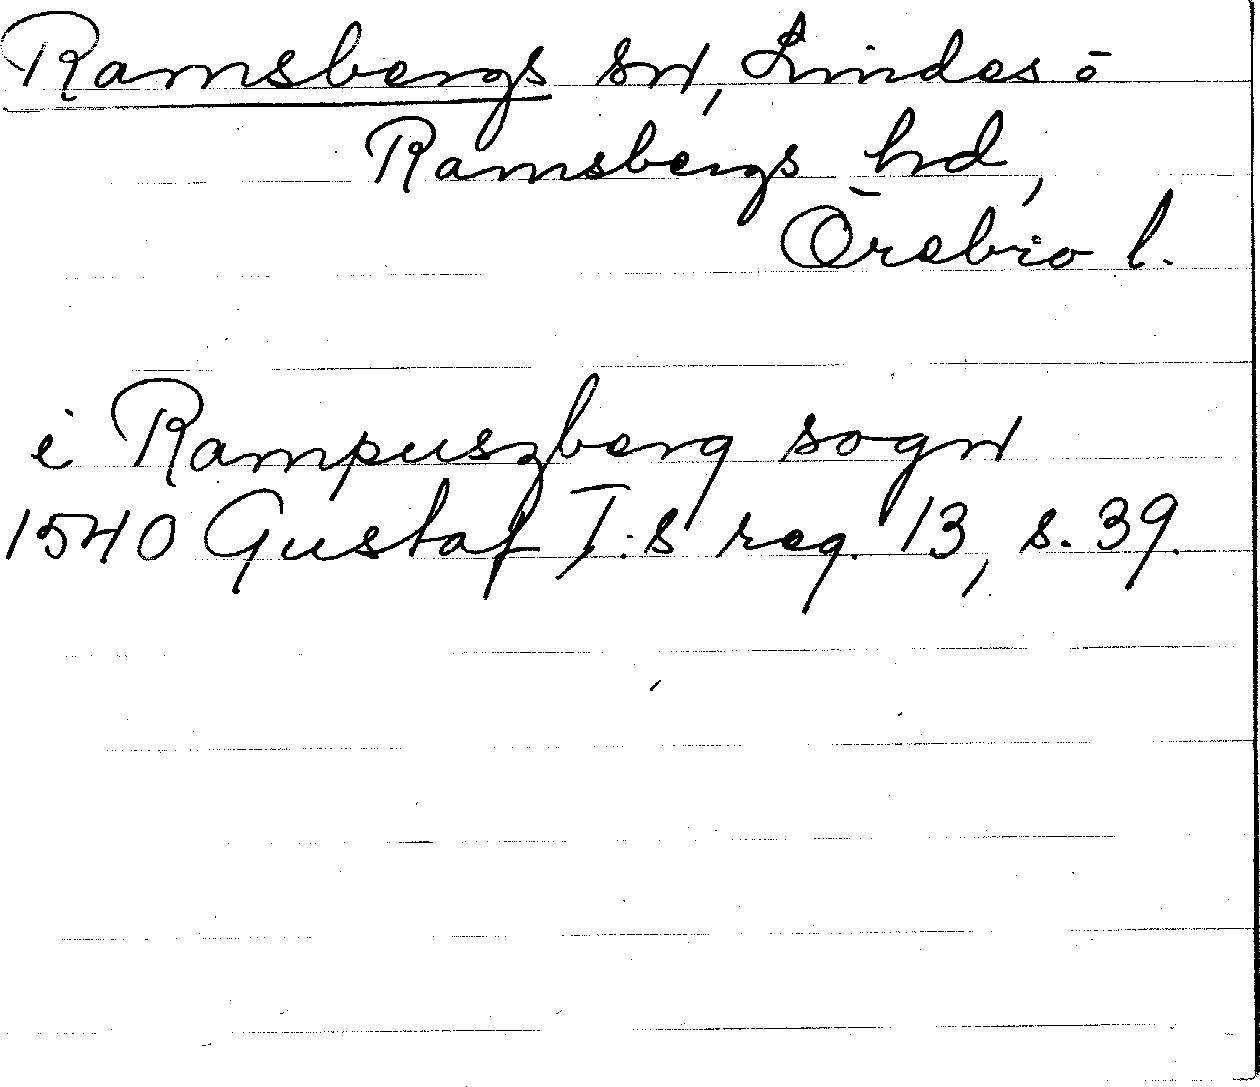 Ramsbergs sn, Lindes o
Ramsbergs hd,
Örebro l.
i Rampuszberg sogn
1540 Gustaf I:s reg. 13, s. 39.